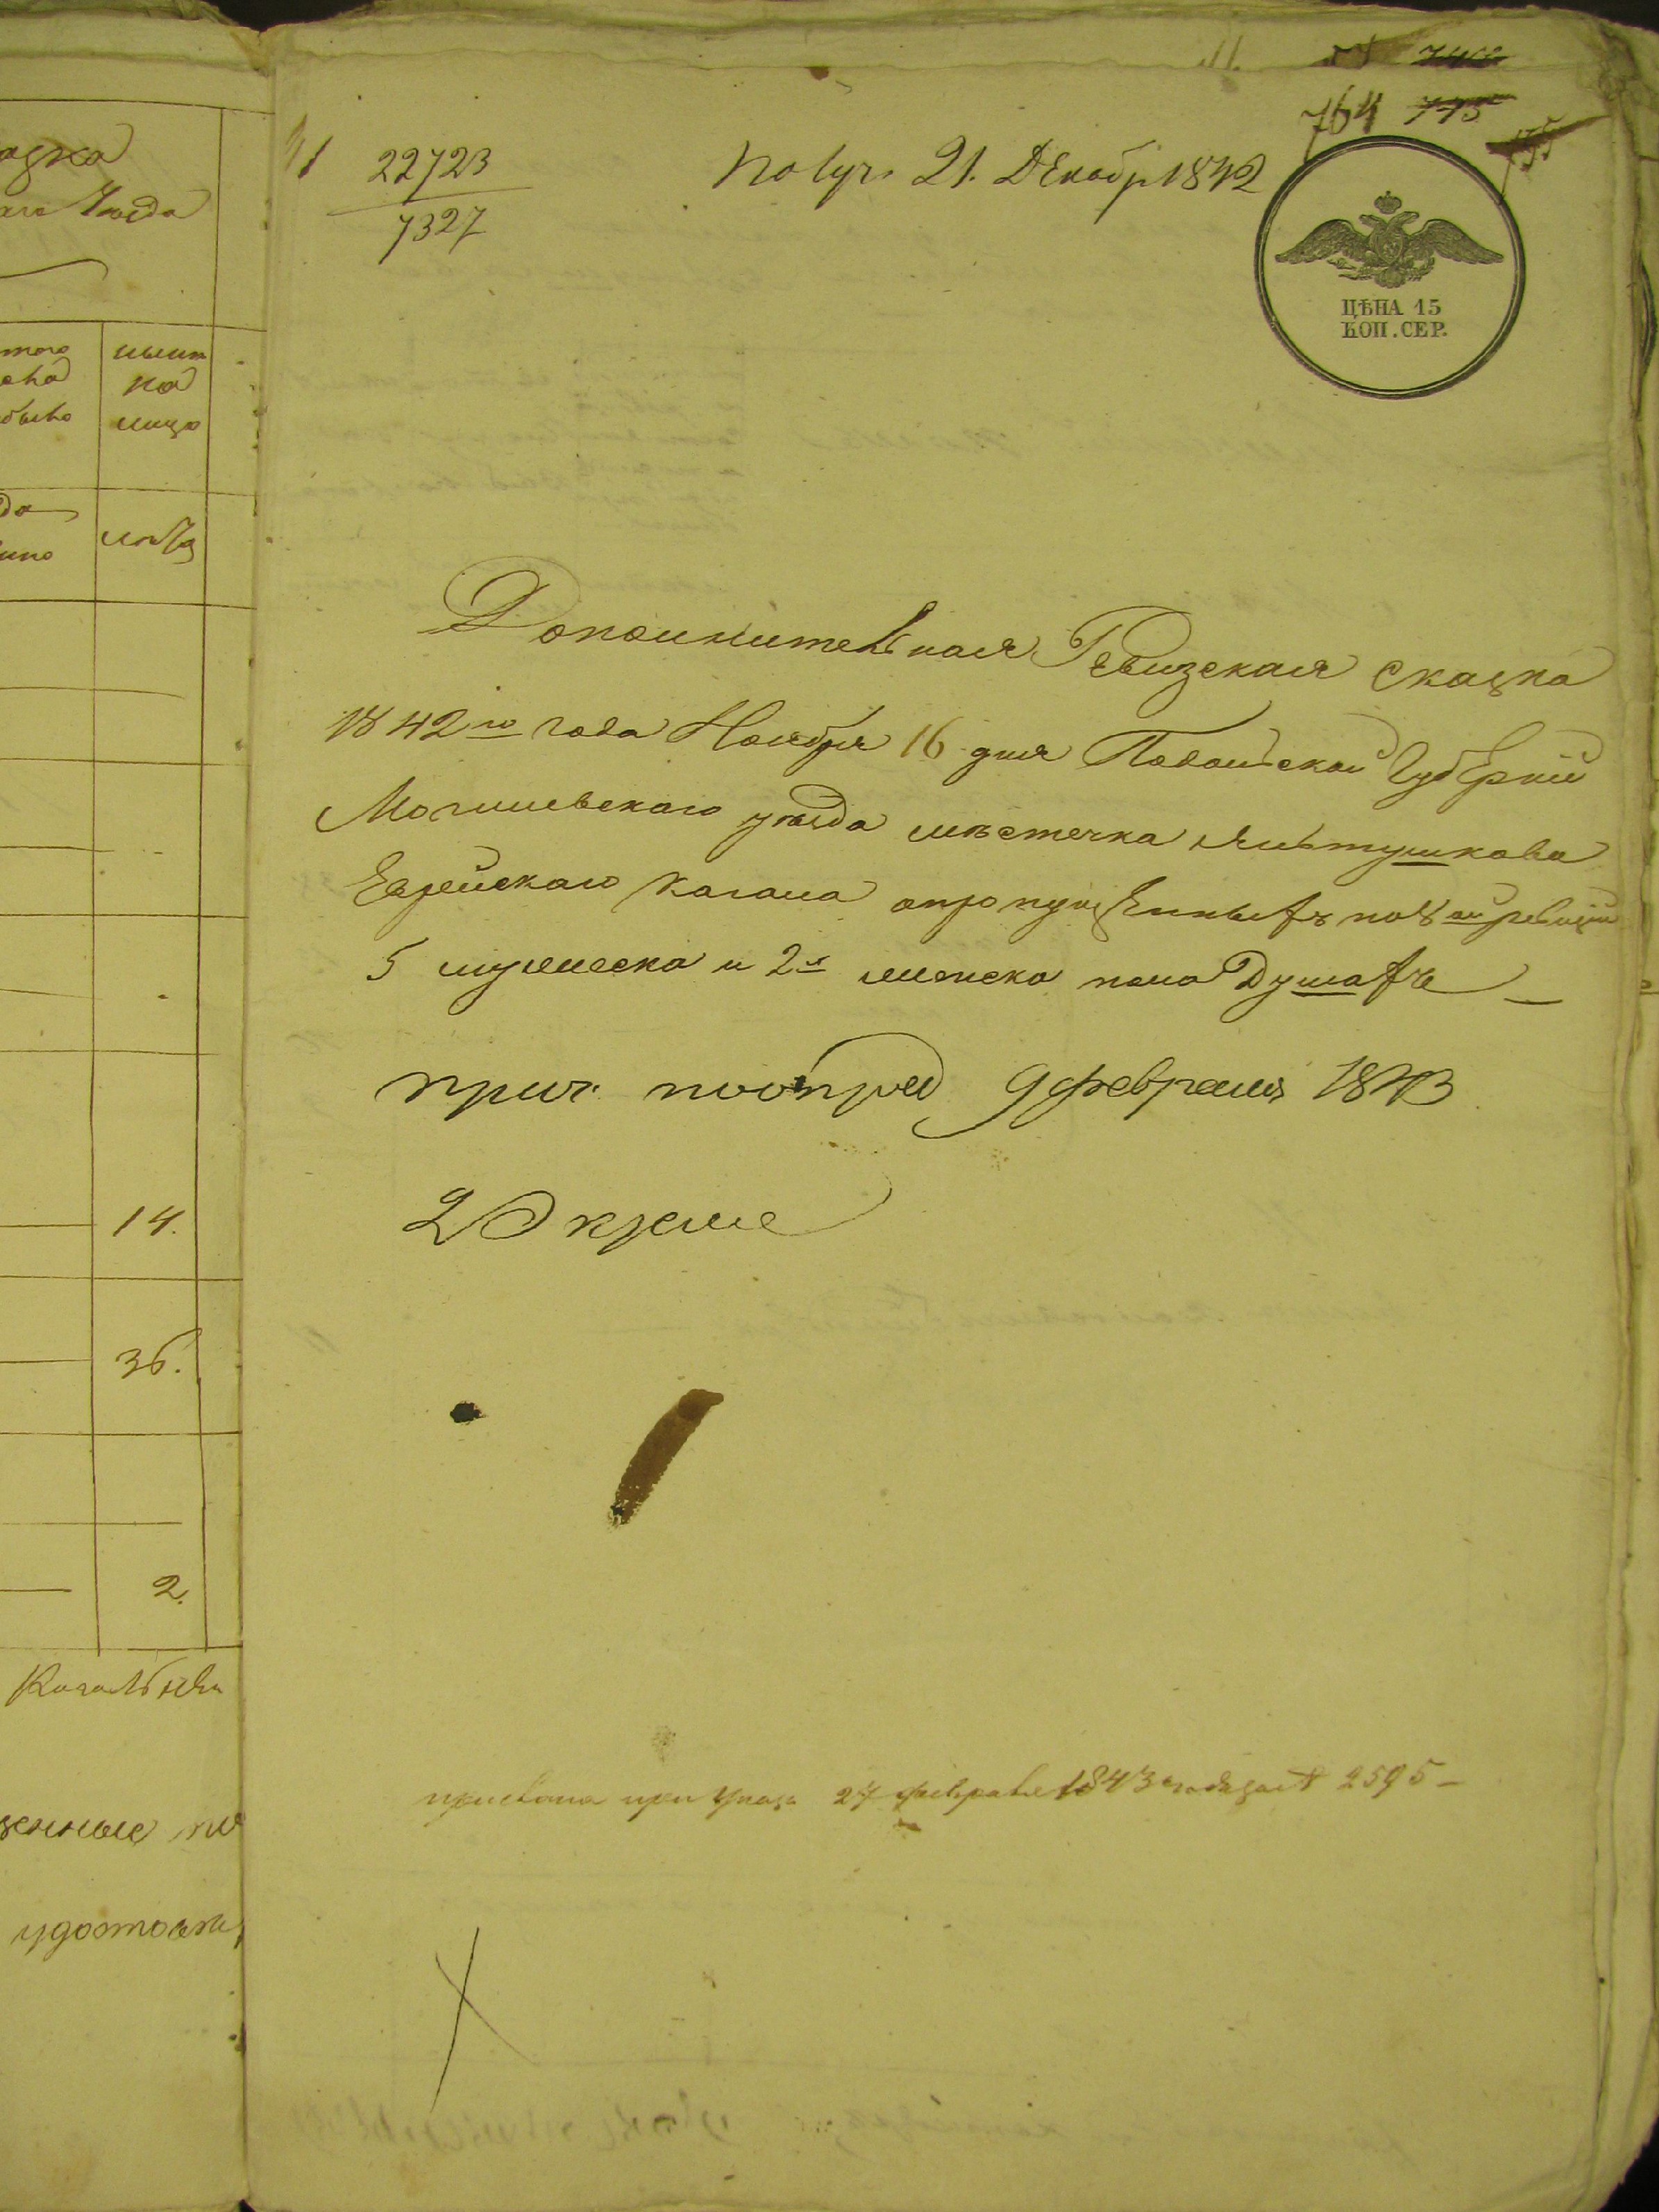 азка
аго Уѣзда
того
ска
было
нынѣ
на
лицо
лѣта
14.
36.
2.
Кагальны
удостовѣ
764 775
22723
7327
Получ. 21. Декабр 1842
ЦѢНА 15
КОП. СЕР.
Дополнительная Ревизская сказка
1842го года Ноября 16 дня Подольской Губерніи
Могилевскаго уѣзда мѣстечка Ялтушкова
Еврейскаго Кагала о пропущенныхъ по 8ой ревизіи
5 мужеска и 2х женска пола Душахъ
прич. 9 февраля 1843
2 Экземп
прислана при Указѣ 27 февраля 1843 года за № 2595